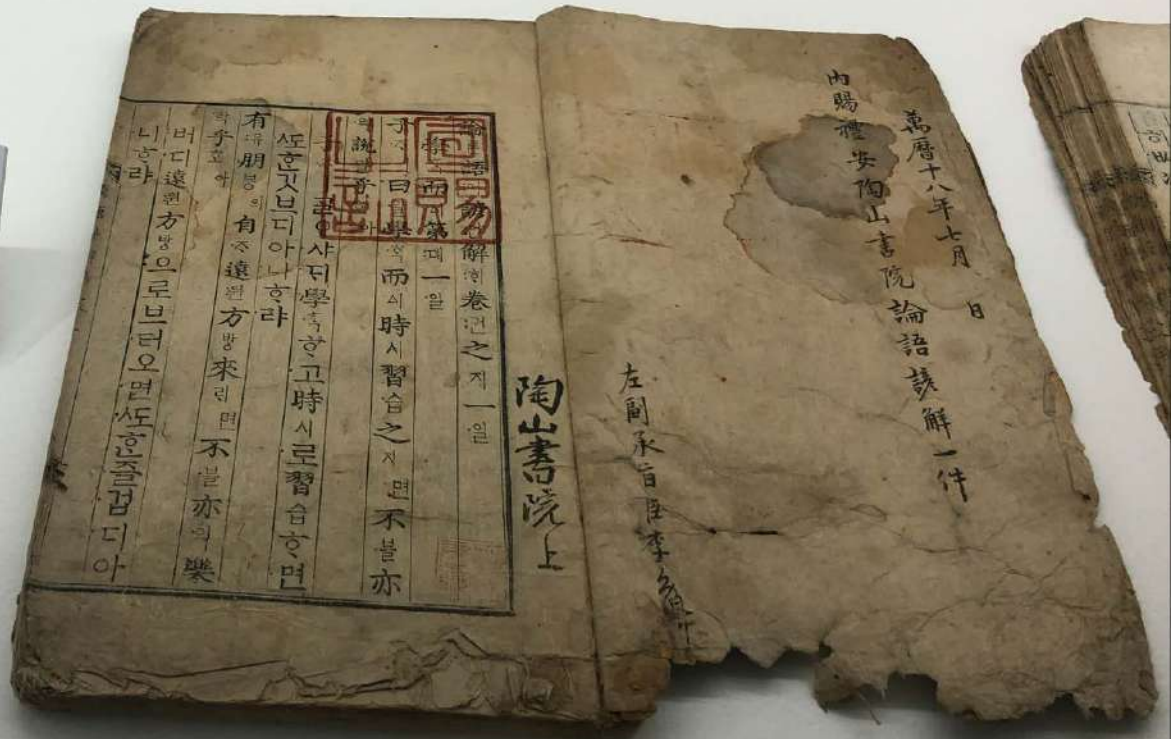 萬曆十八年七月 日
內賜禮安陶山書院論語諺解一件
左副承旨臣李
陶山書院上
論론語어諺언解ᄒᆡ卷권之지一일
學ᄒᆞᆨ而ᅀᅵ第뎨一일
子ᄌᆞ曰왈學ᄒᆞᆨ而ᅀᅵ時시習습之지면不블亦
역說열乎호아
ᄀᆞᆯᄋᆞ샤ᄃᆡ學ᄒᆞᆨᄒᆞ고時시로習습ᄒᆞ면
ᄯᅩᄒᆞᆫ깃브디아니ᄒᆞ랴
有유朋붕이自ᄌᆞ遠원方방來ᄅᆡ면不블亦역樂
락乎호아
버디遠원方방으로브터오면ᄯᅩᄒᆞᆫ즐겁디아
니ᄒᆞ랴